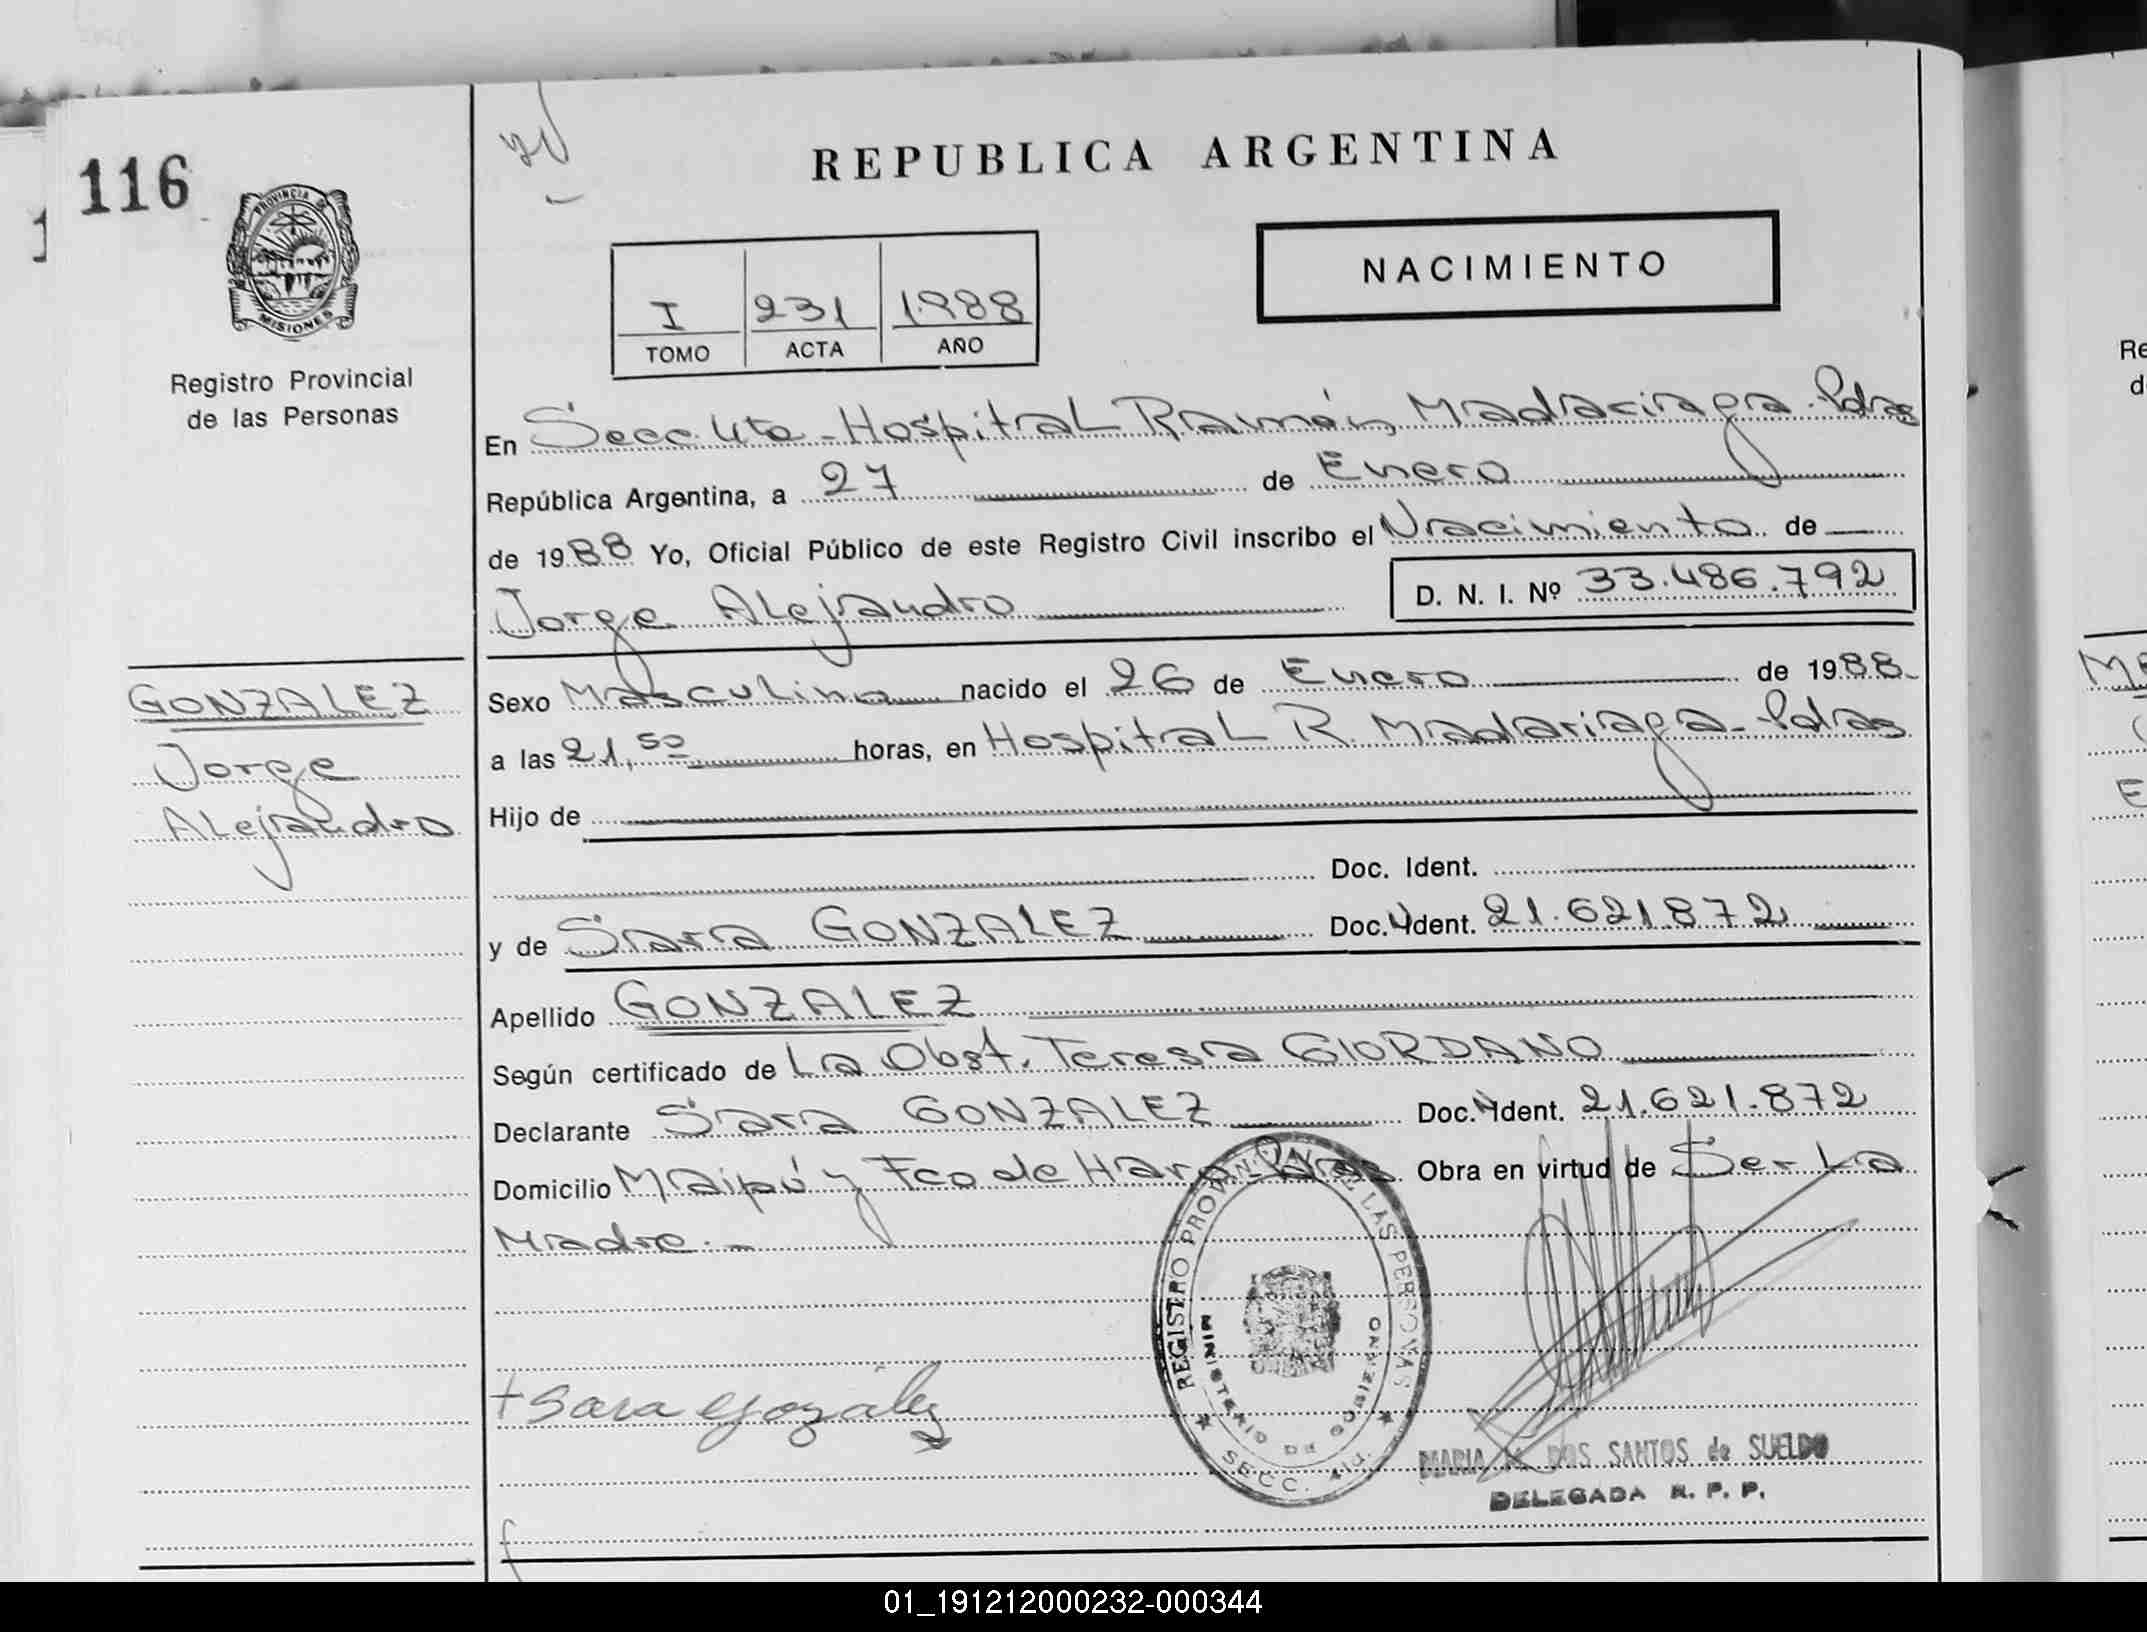 116
REPUBLICA ARGENTINA
PROVINCIA DE
MISIONES
Registro Provincial
de las Personas
I 231 1988
TOMO ACTA AÑO
NACIMIENTO
En Secc. 4ta - Hospital Ramón Madariaga - Pdas
República Argentina, a 27 de Enero
de 1988 Yo, Oficial Público de este Registro Civil inscribo el Nacimiento de
Jorge Alejandro D. N. I. Nº 33.486.792
GONZALEZ
Jorge
Alejandro
Sexo Masculino nacido el 26 de Enero de 1988
a las 21,50 horas, en Hospital R. Madariaga - Pdas
Hijo de
Doc. Ident.
y de Sara GONZALEZ Doc. Ident. 21.621.872
Apellido GONZALEZ
Según certificado de La Obst. Teresa GIORDANO
Declarante Sara GONZALEZ Doc. Ident. 21.621.872
Domicilio Maipú y Fco de Haro - Pdas Obra en virtud de Ser La
Madre.-
REGISTRO PROVINCIAL DE LAS PERSONAS
MINISTERIO DE GOBIERNO
SECC. 4ta.
+ Sara Gozález
MARIA M. DOS SANTOS de SUELDO
DELEGADA R. P. P.
01_191212000232-000344